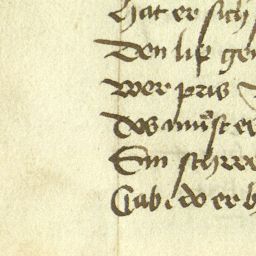 hat er sich
Den lip ge
wer pris
Das muͦst er
Sin schrei
Gab do er h